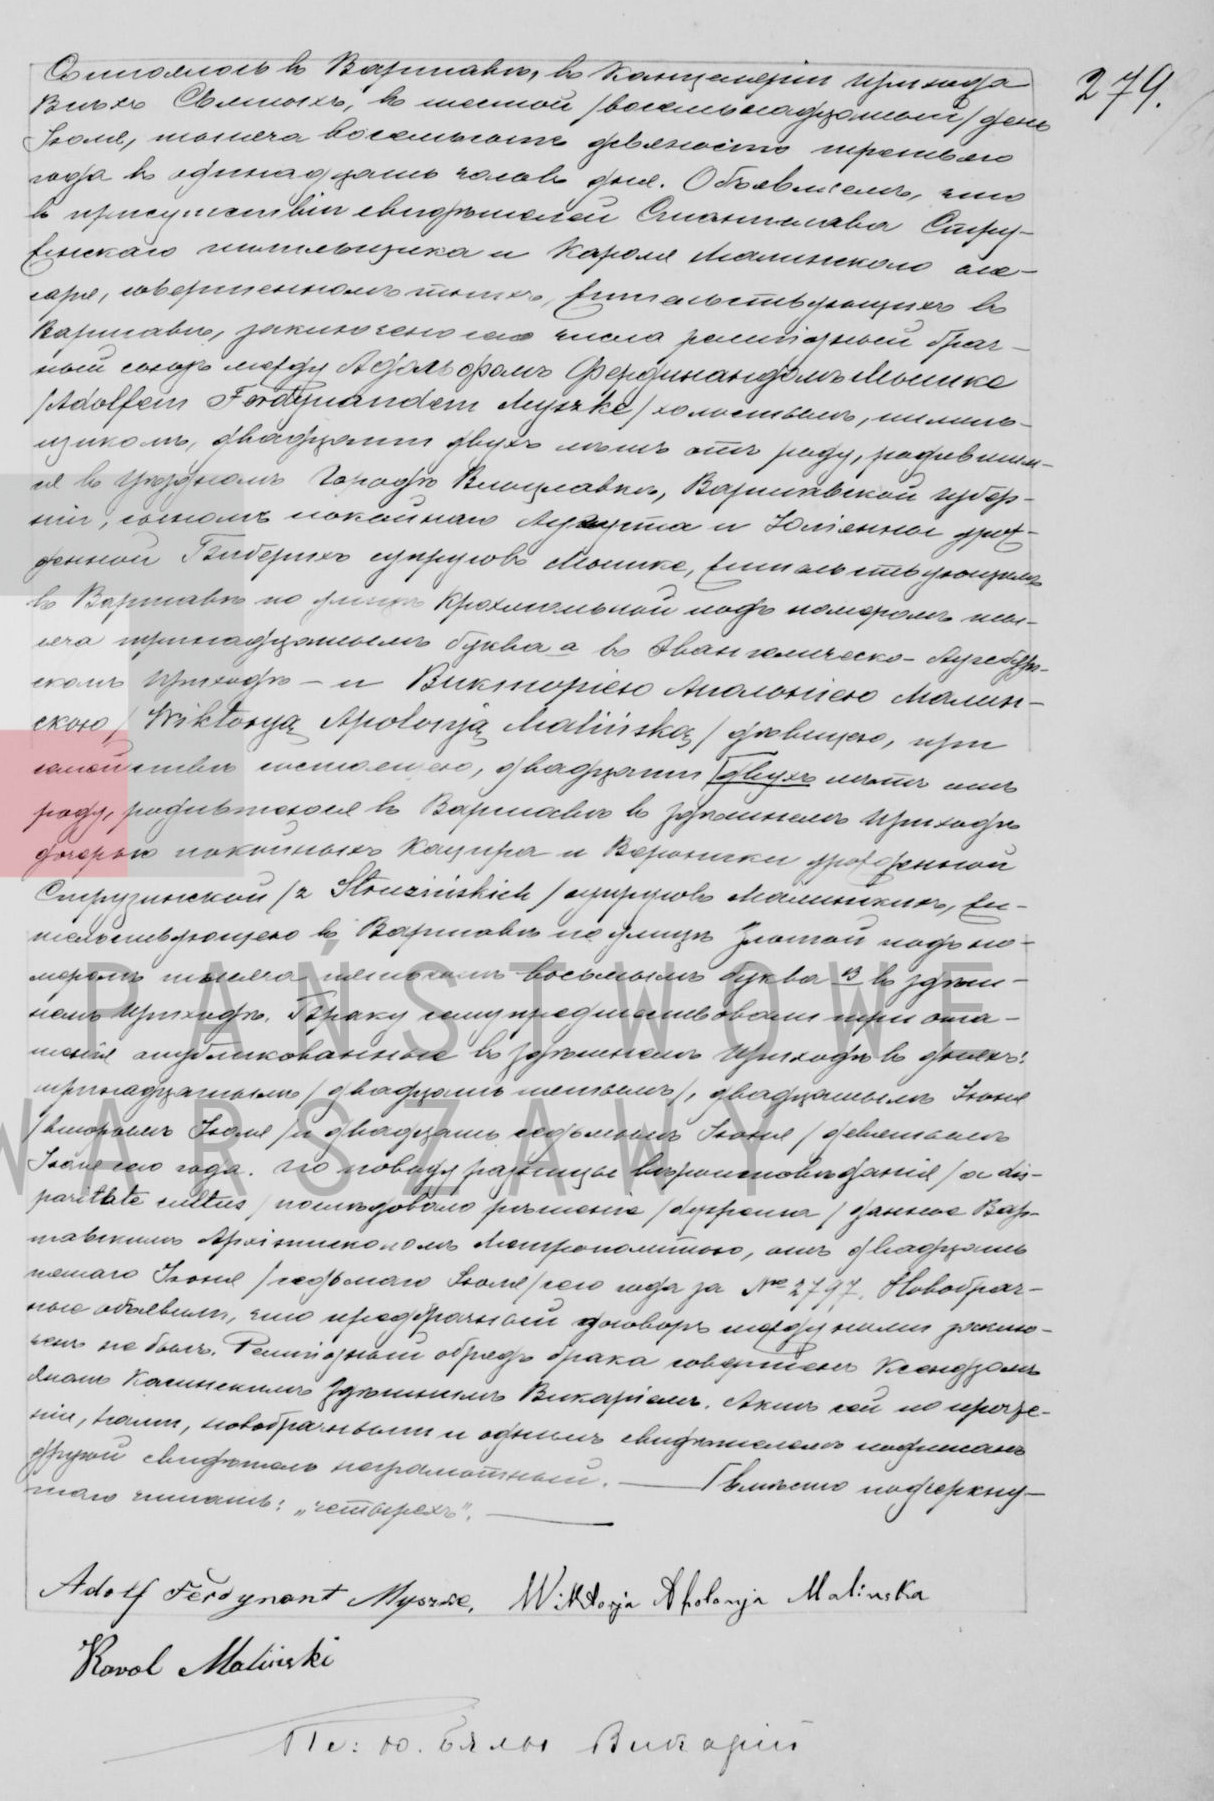 279.
Состоялось въ Варшавѣ, въ Канцеляріи Прихода
Всѣхъ Святыхъ, въ шестой /восемьнадцатый/ день
Іюля, тысяча восемьсотъ девяносто третьяго
года въ одинадцать часовъ дня. Объявляемъ, что
въ присутствіи свидѣтелей Станислава Стру-
скаго пильщика и Кароля Малинскаго сле-
саря, совершеннолѣтнихъ, жительствующихъ въ
Варшавѣ, заключенъ сего числа религіозный брач-
ный союзъ между Адольфомъ Фердинандомъ Мышке
/Adolfem Ferdynandem Myszke/ холостымъ, пиль-
щикомъ, двадцати двухъ лѣтъ отъ роду, родившим-
ся въ Уѣздномъ Городѣ Влоцлавкѣ, Варшавской Губер-
ніи, сыномъ покойнаго Августа и Юліанны урож-
денной супруговъ Мышке, жительствующимъ
въ Варшавѣ по улицѣ Крохмальной подъ номеромъ ты-
сяча тринадцатымъ буква а въ Евангелическо-Аугсбург-
скомъ Приходѣ — и Викторіею Аполоніею Малин-
скою /Wiktoryą Apolonją Malińską/ дѣвицею, при
семействѣ состоящею, двадцати двухъ лѣтъ отъ
роду, родившеюся въ Варшавѣ въ здѣшнемъ Приходѣ
дочерью покойныхъ Каспра и Вероники урожденной
Струзинской /z Struzińskich/ супруговъ Малинскихъ, жи-
тельствующею въ Варшавѣ по улицѣ Злотой подъ но-
меромъ тысяча пятьсотъ восьмымъ буква В въ здѣш-
немъ Приходѣ. Браку сему предшествовали три огла-
шенія опубликованныя въ здѣшнемъ Приходѣ въ дняхъ:
тринадцатымъ /двадцать пятымъ/, двадцатымъ Іюня
/вторымъ Іюля/ и двадцать седьмымъ Іюня /девятымъ
Іюля сего года. По поводу разницы вѣроисповѣданія /a dis-
paritate cultus/ послѣдовало рѣшеніе /диспенса/ данное Вар-
шавскимъ Архіепископомъ Митрополитою, отъ двадцать
пятаго Іюня /седьмаго Іюля/ сего года за № 2797. Новобрач-
ные объявили, что предбрачный договоръ между ними заклю-
ченъ не былъ. Религіозный обрядъ брака совершенъ Ксендзомъ
Яномъ Касинскимъ Здѣшнимъ Викаріемъ. Актъ сей по прочте-
ніи, Нами, новобрачными и однимъ свидѣтелемъ подписанъ
другой свидѣтель неграмотный. — Вмѣсто подчеркну-
таго читать: „четырехъ".
Adolf Ferdynant Myszke, Wiktorja Apolonja Malinska
Karol Malinski
Викарій
PAŃSTWOWE
WARSZAWY